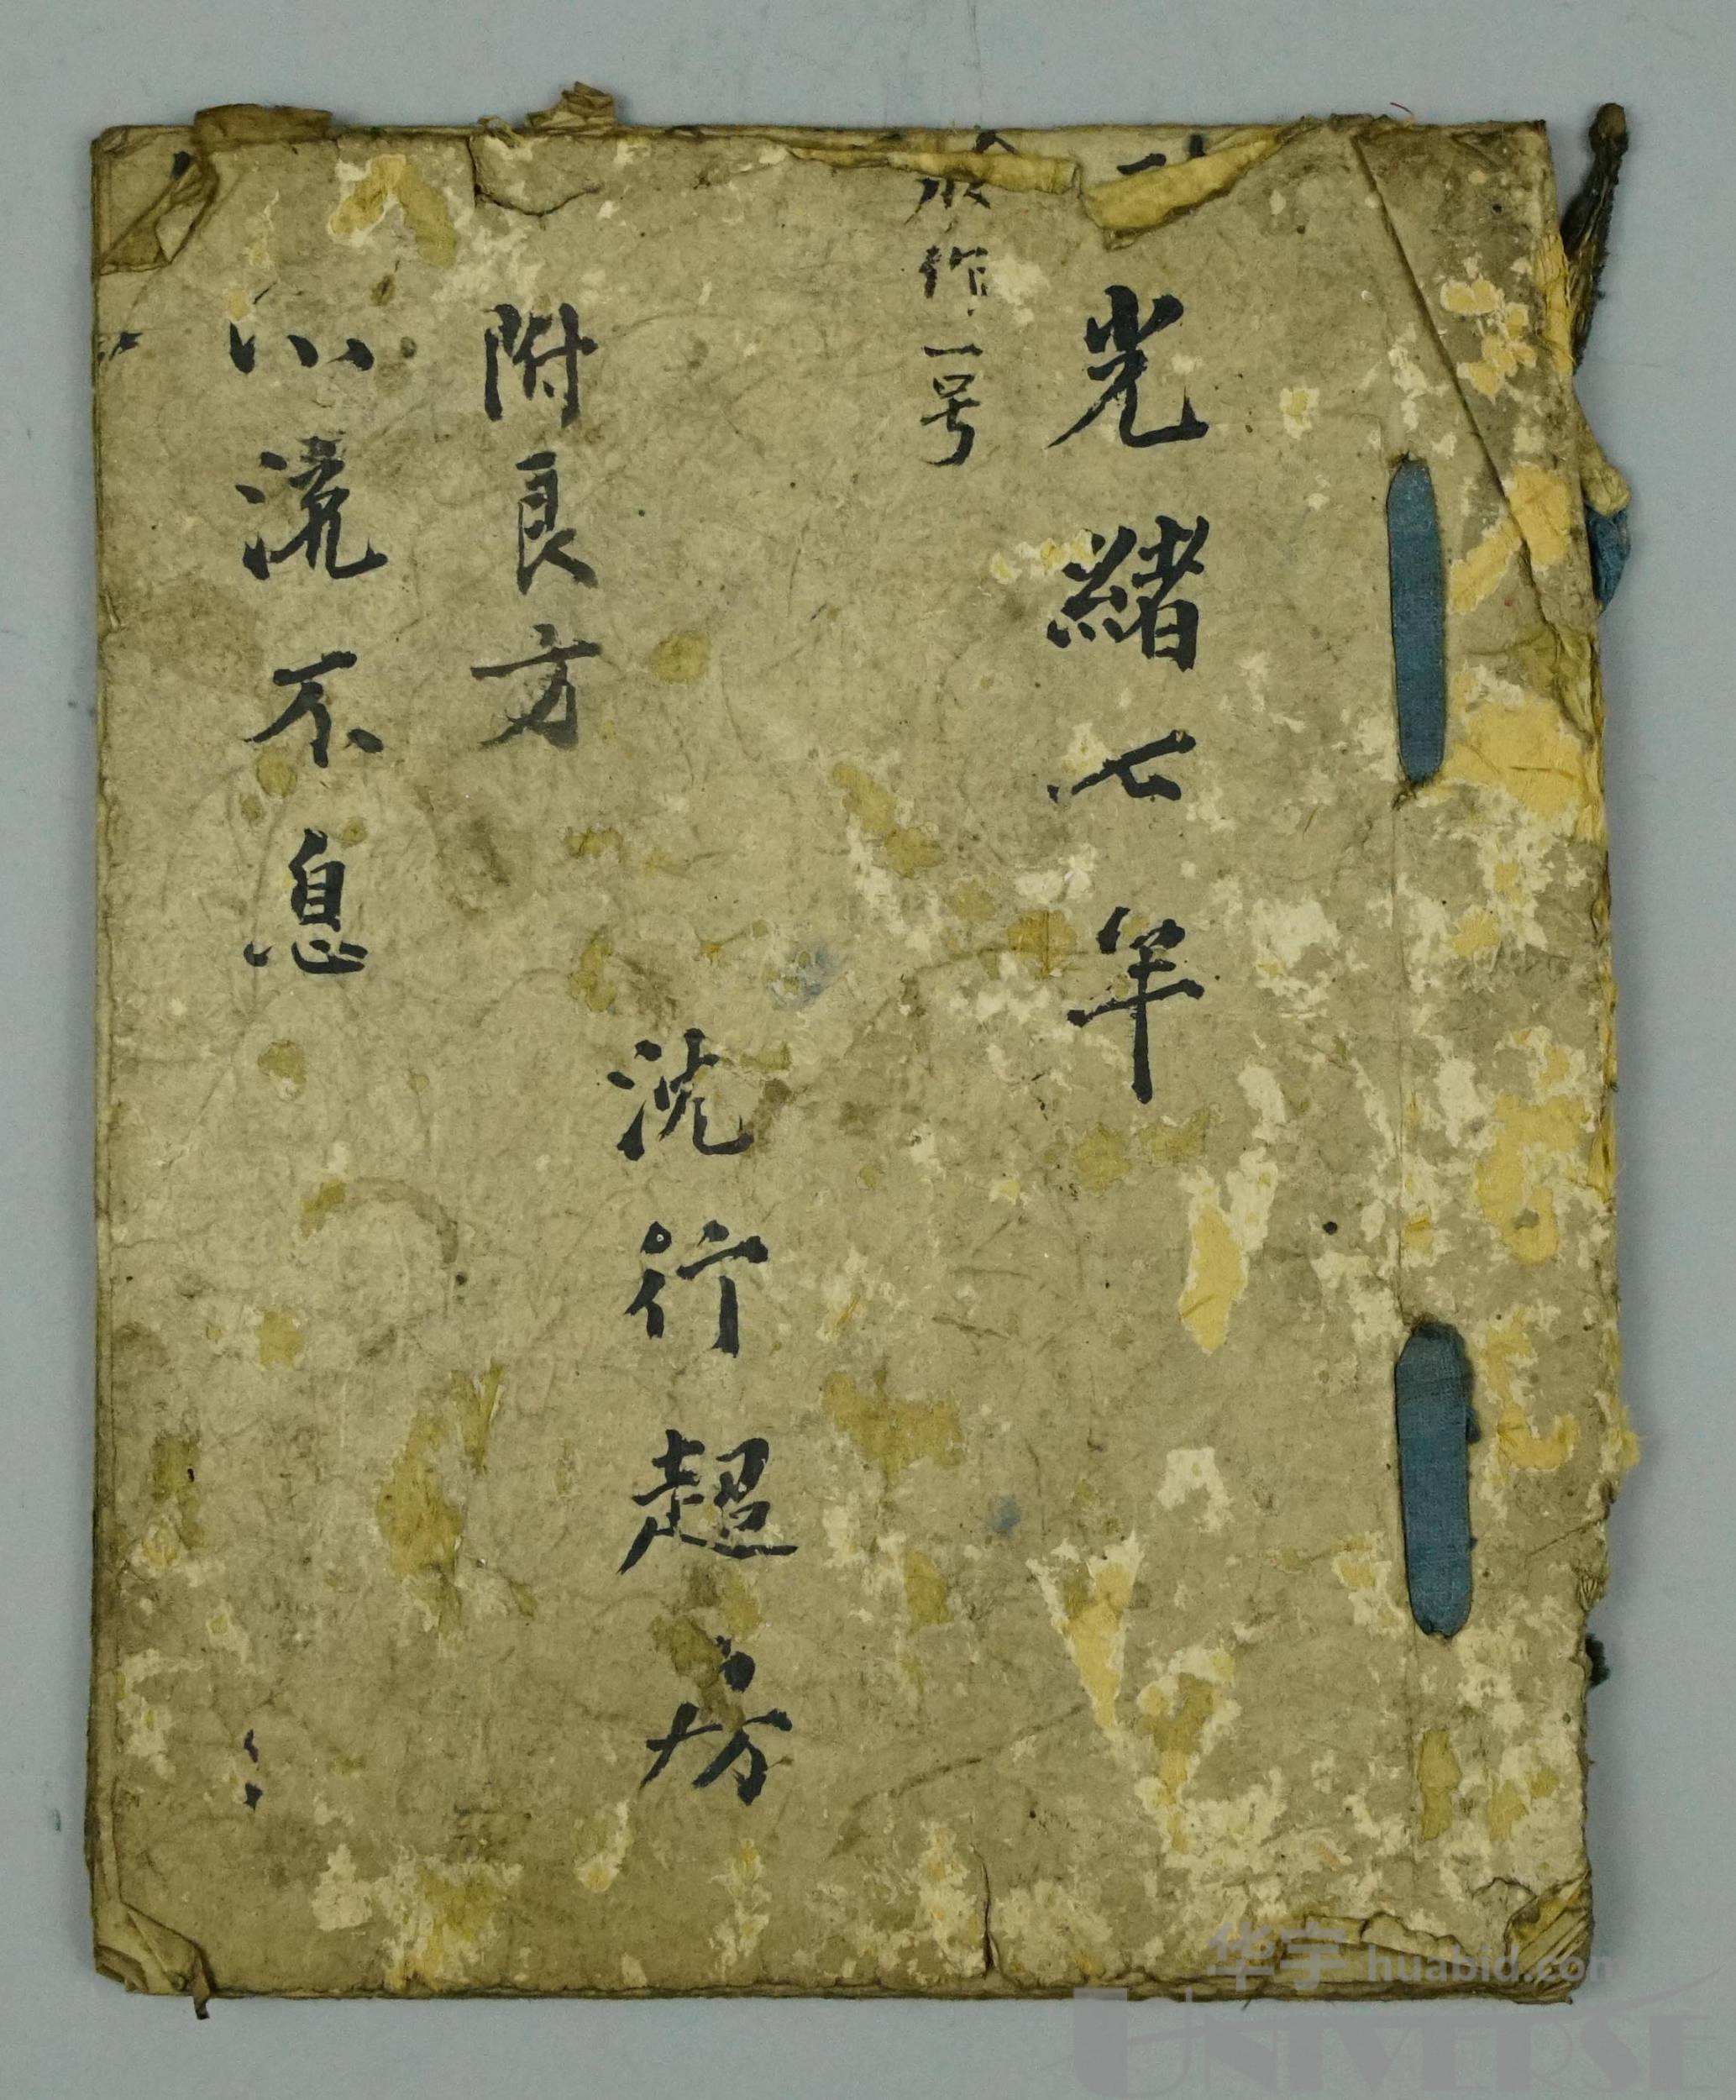 光緒七年
作一号
沈行超
附良方
川流不息
华宇 huabid.com
UNIVERSE